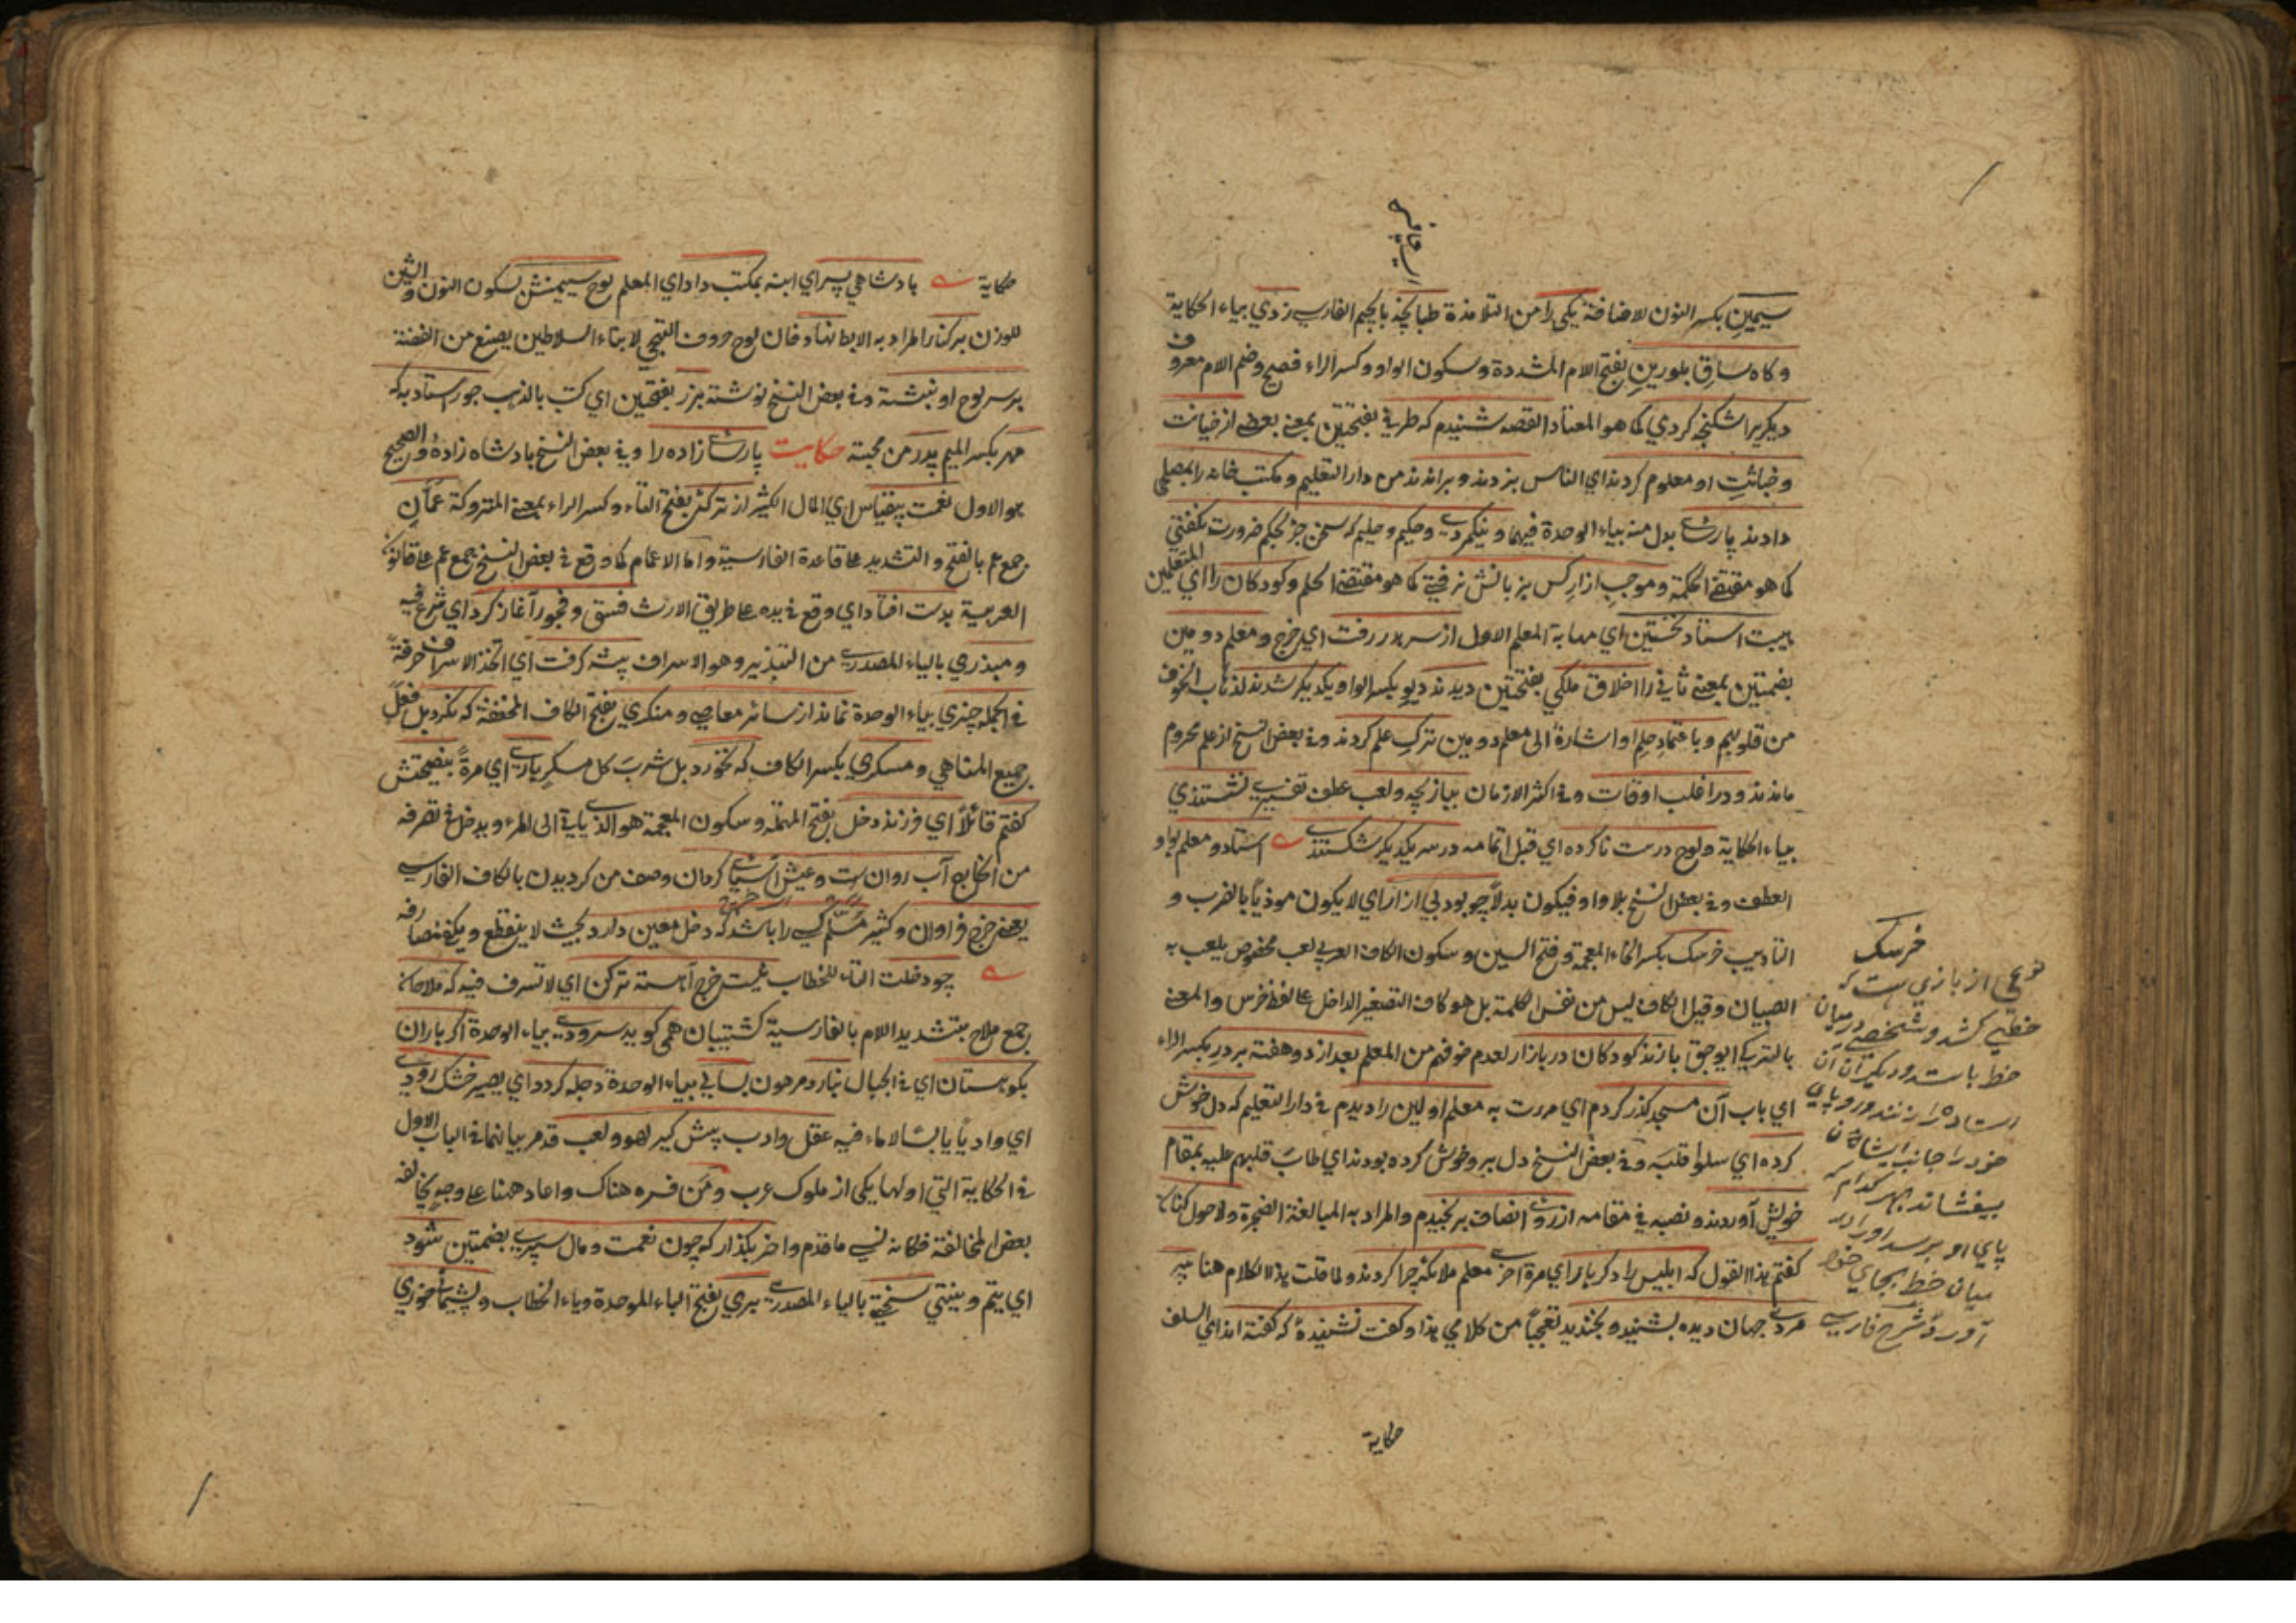 سيمين بكسر النون للاضافة يكى را من التلامذة طبانچه بالجيم الفارسي زدي بياء الحكاية
و كاه ساق بلورين بفتح اللام المشددة وسكون الواو وكسر الراء فصيح وضم اللام معروف
ديكريرا شكنجه كردي كما هو المعتاد القصه شنيدم كه طرفي بفتحتين بمعنى بعضى از خيانت
و خباثت او معلوم كردند اي الناس بزدند و براندند من دار التعليم و مكتب خانه را بمصلحي
دادند پارسايى بدل منه بياء الوحدة فيهما و نيكمردي و حكيم و حليم كه سخن جز بحكم ضرورت نكفتي
كما هو مقتضى الحكمة و موجب ازار كس بر زبانش نرفتي كما هو مقتضى الحلم و كودكان را اي المتعلمين
هيبت استاد نخستين اي مهابة المعلم الاول از سر بدر رفت اي خرج و معلم دومين
بضمتين بمعنى ثاني را اخلاق ملكي بفتحتين ديدند ديو بكسر الواو يكديكر شدند لذهاب الخوف
من قلوبهم و باعتماد حلم او اشارة الى معلم دومين ترك علم كردند وفي بعض النسخ از علم محروم
ماندند و در اغلب اوقات وفي اكثر الازمان ببازيچه ولعب عطف تفسيري نشستندي
بياء الحكاية و لوح درست ناكرده اي قبل اتمامه در سر يكديكر شكستندي استاد و معلم بواو
العطف وفي بعض النسخ بلا واو فيكون بدلاً چو بود بي ازار اي لا يكون موذياً بالضرب و
التاديب خرسك بكسر الخاء المعجمة وفتح السين وسكون الكاف العربي لعب مخصوص يلعب به
الصبيان وقيل الكاف ليس من نفس الكلمة بل هو كاف التصغير الداخل على لفظ خرس والمعنى
بالتركي ايوجق بازند كودكان در بازار لعدم خوفهم من المعلم بعد از دو هفته بر در بكسر الراء
اي باب آن مسجد كذر كردم اي مررت به معلم اولين را ديدم في دار التعليم كه دل خوش
كرده اي سلوا قلبه وفي بعض النسخ دل بر و خوش كرده بودند اي طاب قلبهم عليه بمقام
خويش آوردند و نصبه في مقامه از روى انصاف برنجيدم والمراد به المبالغة الضجرة ولا حول كنان
كفتم هذا القول كه ابليس را دكر بار اي مرة اخرى معلم ملائكه چرا كردند ولما قلت هذا الكلام هنا پير
مردي جهان ديده بشنيد و بخنديد تعجباً من كلامي هذا و كفت نشنيدۀ كه كفته اند اي السلف
خرسك
نوعى از بازي است كه
خطى كشد و شخصى درميان
خط بايستد و ديكران آن
استاده را زنند و او پاي
خود را جانب ايشان
بيفشاند بهر كدام كه
پاي او برسد او را در
ميان خط بجاي خود
آورد شرح فارسي
حكاية
حكاية پادشاهي پسر اي ابنه بمكتب داد اي المعلم لوح سيمينش بسكون النون والشين
للوزن بر كنار المراد به الابط نهاد فان لوح حروف التهجي لابناء السلاطين يصنع من الفضة
بر سر لوح او نبشته وفي بعض النسخ نوشته بزر بفتحتين اي كتب بالذهب جور استاد به كه
مهر بكسر الميم پدر من محبته حكايت پارسا زاده را وفي بعض النسخ پادشاه زاده والصحيح
هو الاول نعمت بيقياس اي المال الكثير از تركۀ بفتح التاء وكسر الراء بمعنى المتروكة عمان
جمع عم بالفتح والتشديد على قاعدة الفارسية واما الاعمام كما وقع في بعض النسخ جمع عم على قانون
العربية بدست افتاد اي وقع في يده على طريق الارث فسق و فجور آغاز كرد اي شرع فيه
و مبذري بالياء المصدري من التبذير وهو الاسراف پيشه كرفت اي اتخذ الاسراف حرفةً
في الجمله چيزي بياء الوحدة نماند از سائر معاصي و منكري بفتح الكاف المخففة كه نكرد بل فعل
جميع المناهي و مسكري بكسر الكاف كه نخورد بل شرب كل مسكر باري اي مرةً بنصيحتش
كفتم قائلاً اي فرزند دخل بفتح المهملة وسكون المعجمة هو الذي ياتي الى المرء ويدخل في تصرفه
من الخارج آب روان است و عيش آسياى كردان وصف من كرديدن بالكاف الفارسي
يعني خرج فراوان و كثير مسلم كسي را باشد كه دخل معين دارد بحيث لا ينقطع ويكفي مصارفه
چو دخلت التاء للخطاب نيست خرج آهسته تر كن اي لا تسرف فيه كه ملاحان
جمع ملاح بتشديد اللام بالفارسية كشتيبان همى كويد سرودي بياء الوحدة اكر باران
بكوهستان اي في الجبال نبارد مرهون بسالي بياء الوحدة دجله كردد اي يصير خشك رودي
اي وادياً يابساً لا ماء فيه عقل و ادب پيش كير لهو و لعب قد مر بيانهما في الباب الاول
في الحكاية التي اولها يكى از ملوك عرب ومن فسره هناك واعاد ههنا على وجه يخالفه
بعض المخالفة فكانه نسي ما قدم واخر بكذار كه چون نعمت و مال سپري بضمتين شود
اي يتم وينتهي سختي بالياء المصدري بري بفتح الباء الموحدة وياء الخطاب و پشيماني خوري